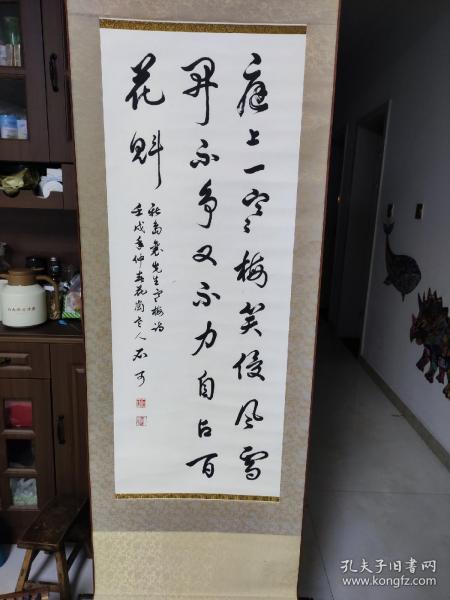 庭上一寒梅笑侵风雪
开不争又不力自占百
花魁
新岛襄先生寒梅诗
壬戌年仲春花岗老人石可
孔夫子旧书网
www.kongfz.com